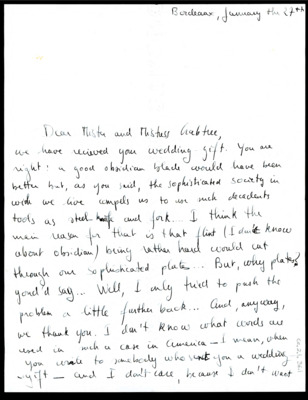 Bordeaux, January the 27th
Dear Mister and Mistress Crabtree,
we have recieved you wedding gift. You are
right: a good obsidian blade would have been
better but, as you said, the sophisticated society in
wich we live compels us to use such decadents
tools as steel knife and fork... I think the
main reason for that is that flint (I don't know
about obsidian) being rather hard would cut
through our sophisticated plates... But, why plates
you'd say... Well, I only tried to push the
problem a little further back... And, anyway,
we thank you. I don't know what words are
used in such a case in America - I mean, when
you wrote to somebody who sent you a wedding
gift - and I don't care, because I don't want